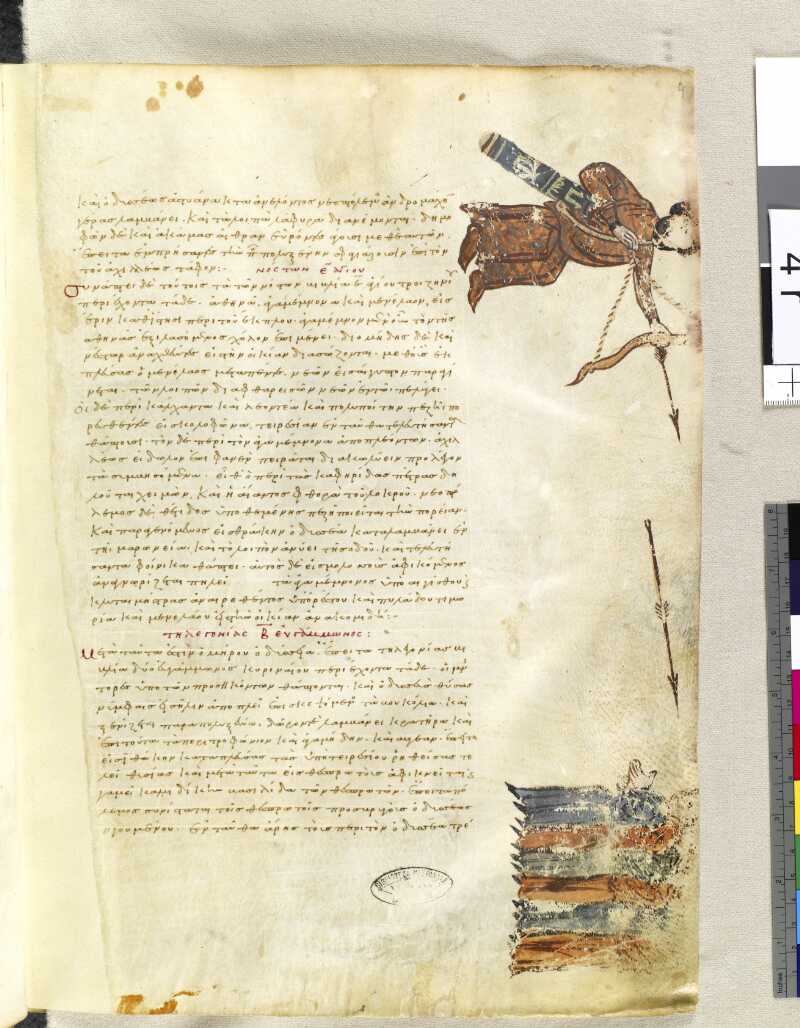 καὶ ὀδυσσέως ἀστυάνακτα ἀνελόντος νεοπτόλεμος ἀνδρομάχην
γέρας λαμβάνει. καὶ τὰ λοιπὰ λάφυρα διανέμονται. δημο
φῶν δὲ καὶ ἀκάμας αἴθραν εὑρόντες ἄγουσι μεθ' ἑαυτῶν.
ἔπειτα ἐμπρήσαντες τὴν πόλιν πολυξένην σφαγιάζουσιν ἐπὶ τὸν
τοῦ ἀχιλλέως τάφον:-
ΝΟΣΤΩΝ
συνάπτει δὲ τούτοις τὰ τῶν νόστων βιβλία ε ἀγίου τροιζηνίου
περιέχοντα τάδε. ἀθηνᾶ ἀγαμέμνονα καὶ μενέλαον εἰς
ἔριν καθίστησι περὶ τοῦ ἔκπλου. ἀγαμέμνων μὲν οὖν τὸν τῆς
ἀθηνᾶς ἐξιλασόμενος χόλον ἐπιμένει. διομήδης δὲ καὶ
νέστωρ ἀναχθέντες εἰς τὴν οἰκείαν διασώζονται. μεθ' οὓς ἐκ
πλεύσας ὁ μενέλαος μετὰ πέντε νεῶν εἰς αἴγυπτον παραγί
νεται. τῶν λοιπῶν διαφθαρεισῶν νεῶν ἐν τῷ πελάγει.
οἱ δὲ περὶ κάλχαντα καὶ λεοντέα καὶ πολυποίτην πεζῇ πο
ρευθέντες εἰς κολοφῶνα τειρεσίαν ἐνταῦθα τελευτήσαντα
θάπτουσι. τῶν δὲ περὶ τὸν ἀγαμέμνονα ἀποπλεόντων. ἀχιλ
λέως εἴδωλον ἐπιφανὲν πειρᾶται διακωλύειν προλέγον
τὰ συμβησόμενα. εἶθ' ὁ περὶ τὰς καφηρίδας πέτρας δη
λοῦται χειμών, καὶ ἡ αἴαντος φθορὰ τοῦ λοκροῦ. νεοπτό
λεμος δὲ θέτιδος ὑποθεμένης πεζῇ ποιεῖται τὴν πορείαν.
καὶ παραγενόμενος εἰς θρᾴκην ὀδυσσέα καταλαμβάνει ἐν
τῇ μαρωνείᾳ. καὶ τὸ λοιπὸν ἀνύει τῆς ὁδοῦ. καὶ τελευτή
σαντα φοίνικα θάπτει. αὐτὸς δὲ εἰς μολοσσοὺς ἀφικόμενος
ἀναγνωρίζεται πηλεῖ τὰ ἀγαμέμνονος ὑπὸ αἰγίσθου καὶ
κλυταιμήστρας ἀναιρεθέντος ὑπ' ὀρέστου καὶ πυλάδου τιμω
ρία καὶ μενελάου εἰς τὴν οἰκείαν ἀνακομιδή:-
ΤΗΛΕΓΟΝΙΑΣ Β ΕΥΓΑΜΜΩΝΟΣ:
μετὰ ταῦτά ἐστιν ὁμήρου ὀδύσσεια. ἔπειτα τηλεγονίας βι
βλία δύο εὐγάμμωνος κυρηναίου περιέχοντα τάδε. οἱ μνή
στορες ὑπὸ τῶν προσηκόντων θάπτονται. καὶ ὀδυσσεὺς θύσας
νύμφαις εἰς ἦλιν ἀποπλεῖ ἐπισκεψόμενος τὰ βουκόλια. καὶ
ξενίζεται παρὰ πολυξένῳ. δῶρόν τε λαμβάνει κρατῆρα καὶ
ἐπὶ τούτῳ τὰ περὶ τροφώνιον καὶ ἀγαμήδην. καὶ αὐγέαν. ἔπειτα
εἰς ἰθάκην καταπλεύσας τὰς ὑπὸ τειρεσίου ῥηθείσας τε
λεῖ θυσίας καὶ μετὰ ταῦτα εἰς θεσπρωτοὺς ἀφικνεῖται καὶ
γαμεῖ καλλιδίκην βασιλίδα τῶν θεσπρωτῶν. ἔπειτα πό
λεμος συνίσταται τοῖς θεσπρωτοῖς πρὸς βρύγους ὀδυσσέως
ἡγουμένου. ἐνταῦθα ἄρης τοὺς περὶ τὸν ὀδυσσέα τρέ
4r